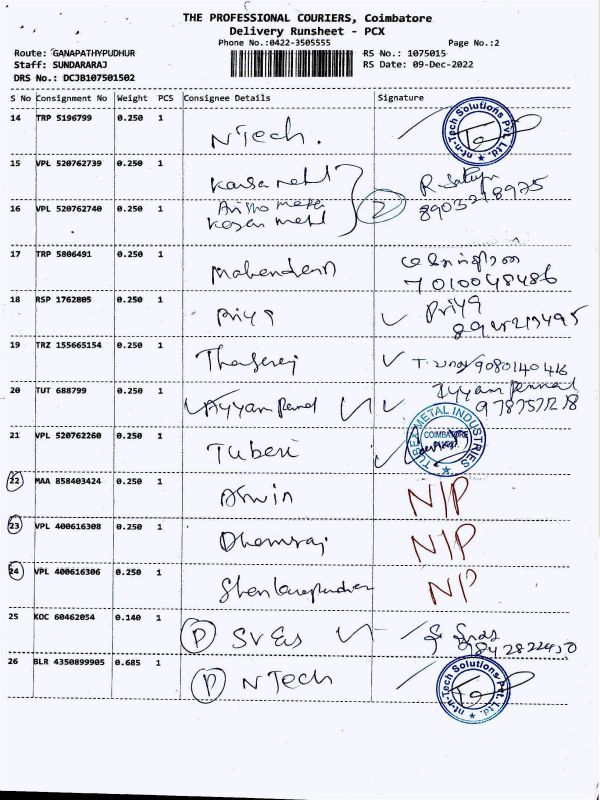 THE PROFESSIONAL COURIERS, Coimbatore
Delivery Runsheet - PCX
Phone No.:0422-3505555
Page No.:2
Route: GANAPATHYPUDHUR
RS No.: 1075015
Staff: SUNDARARAJ
RS Date: 09-Dec-2022
DRS No.: DCJB107501502
S No Consignment No Weight PCS Consignee Details Signature
14 TRP 5196799 0.250 1 NTech. nt-n-Tech Solutions Pvt. Ltd.
15 VPL 520762739 0.250 1
16 VPL 520762740 0.250 1 2
17 TRP 5806491 0.250 1 Mahendran
7010048486
18 RSP 1762805 0.250 1 Priya Priya
19 TRZ 155665154 0.250 1 9080140416
20 TUT 688799 0.250 1
21 VPL 520762260 0.250 1 Tuberi TUBER METAL INDUSTRIES COIMBATORE
22 MAA 858403424 0.250 1 Aswin N/P
23 VPL 400616308 0.250 1 Dhamraj N/P
24 VPL 400616306 0.250 1 NP
25 KOC 60462054 0.140 1 P
9842822450
26 BLR 4350899905 0.685 1 P NTech nt-n-Tech Solutions Pvt. Ltd.